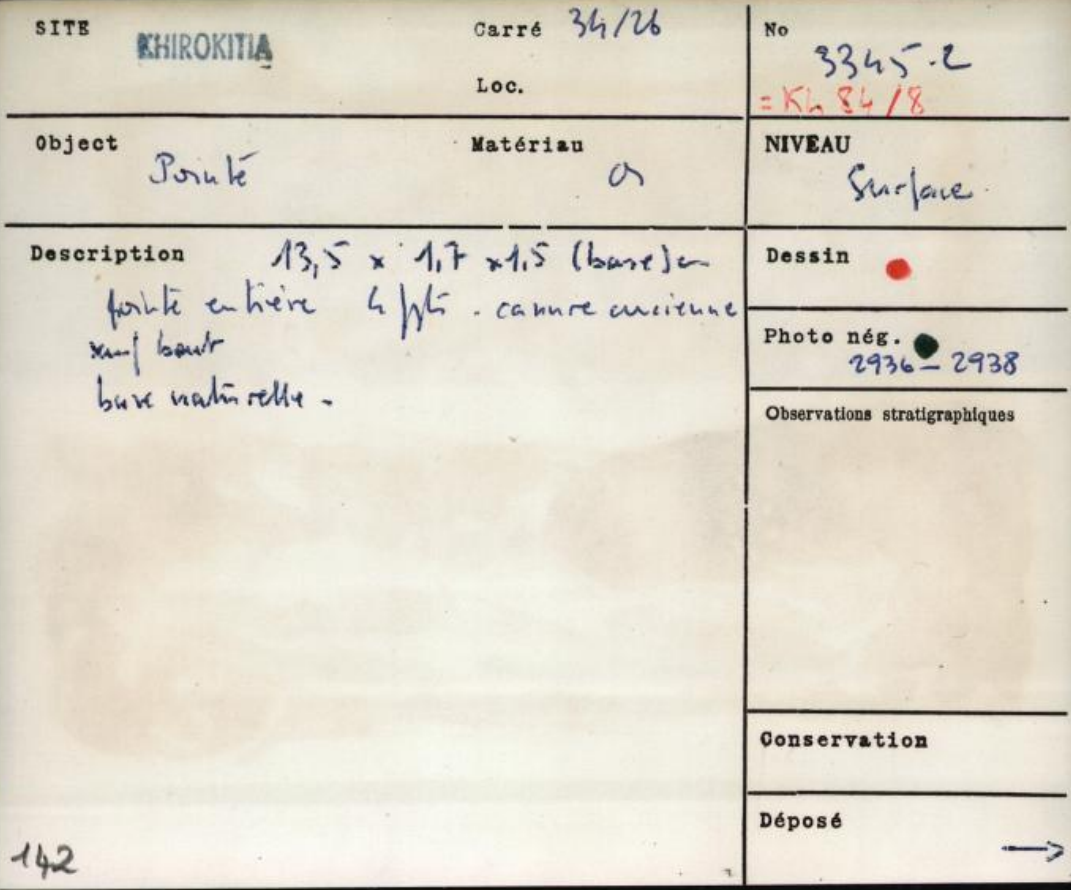 SITE KHIROKITIA
Carré 34/26
Loc.
No 3345.2
= Kh 84/8
Object Pointe
Matériau os
NIVEAU Surface
Description 13,5 x 1,7 x1,5 (base) cm
pointe entière 4 fgts. cassure ancienne
sauf bout
base naturelle.
Dessin
Photo nég.
2936 - 2938
Observations stratigraphiques
Conservation
Déposé
→
142